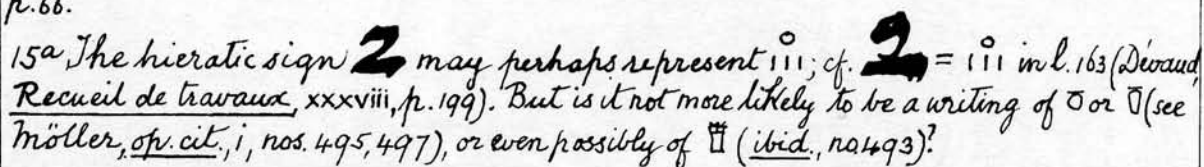 p.66.
15ª The hieratic sign may perhaps represent; cf. = in l. 163 (Dévaud
Recueil de travaux, xxxviii, p. 199). But is it not more likely to be a writing of or (see
Möller, op. cit., i, nos. 495, 497), or even possibly of (ibid., no. 493)?